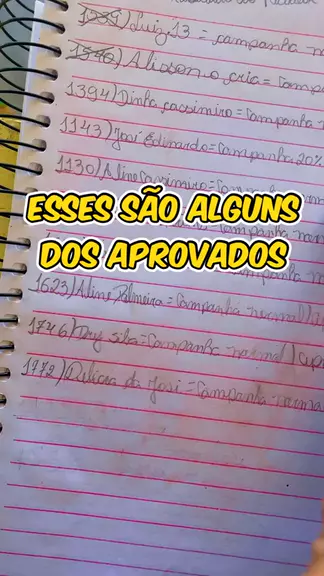 1939) Luiz 13 = campanha
1546) Alisson o cria = Camp
1394) Dinha cassimiro = Campanha
1143) José Eduardo = Campanha 20%
1130) Aline Cassimiro = Campanha
ESSES SÃO ALGUNS
DOS APROVADOS
1623) Aline Palmeira = Campanha normal
1746) Day silva = Campanha normal (cup
1772) da Josi = Campanha norma